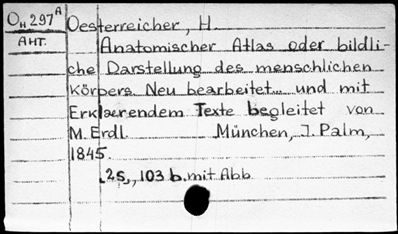 Oн 297 A
Ант.
Oesterreicher, H
Anatomischer Atlas oder bildli-
che Darstellung des menschlichen
Körpers. Neu bearbeitet... und mit
Erklaerendem Texte begleitet von
M. Erdl. München, J. Palm,
1845.
2 s., 103 b. mit Abb